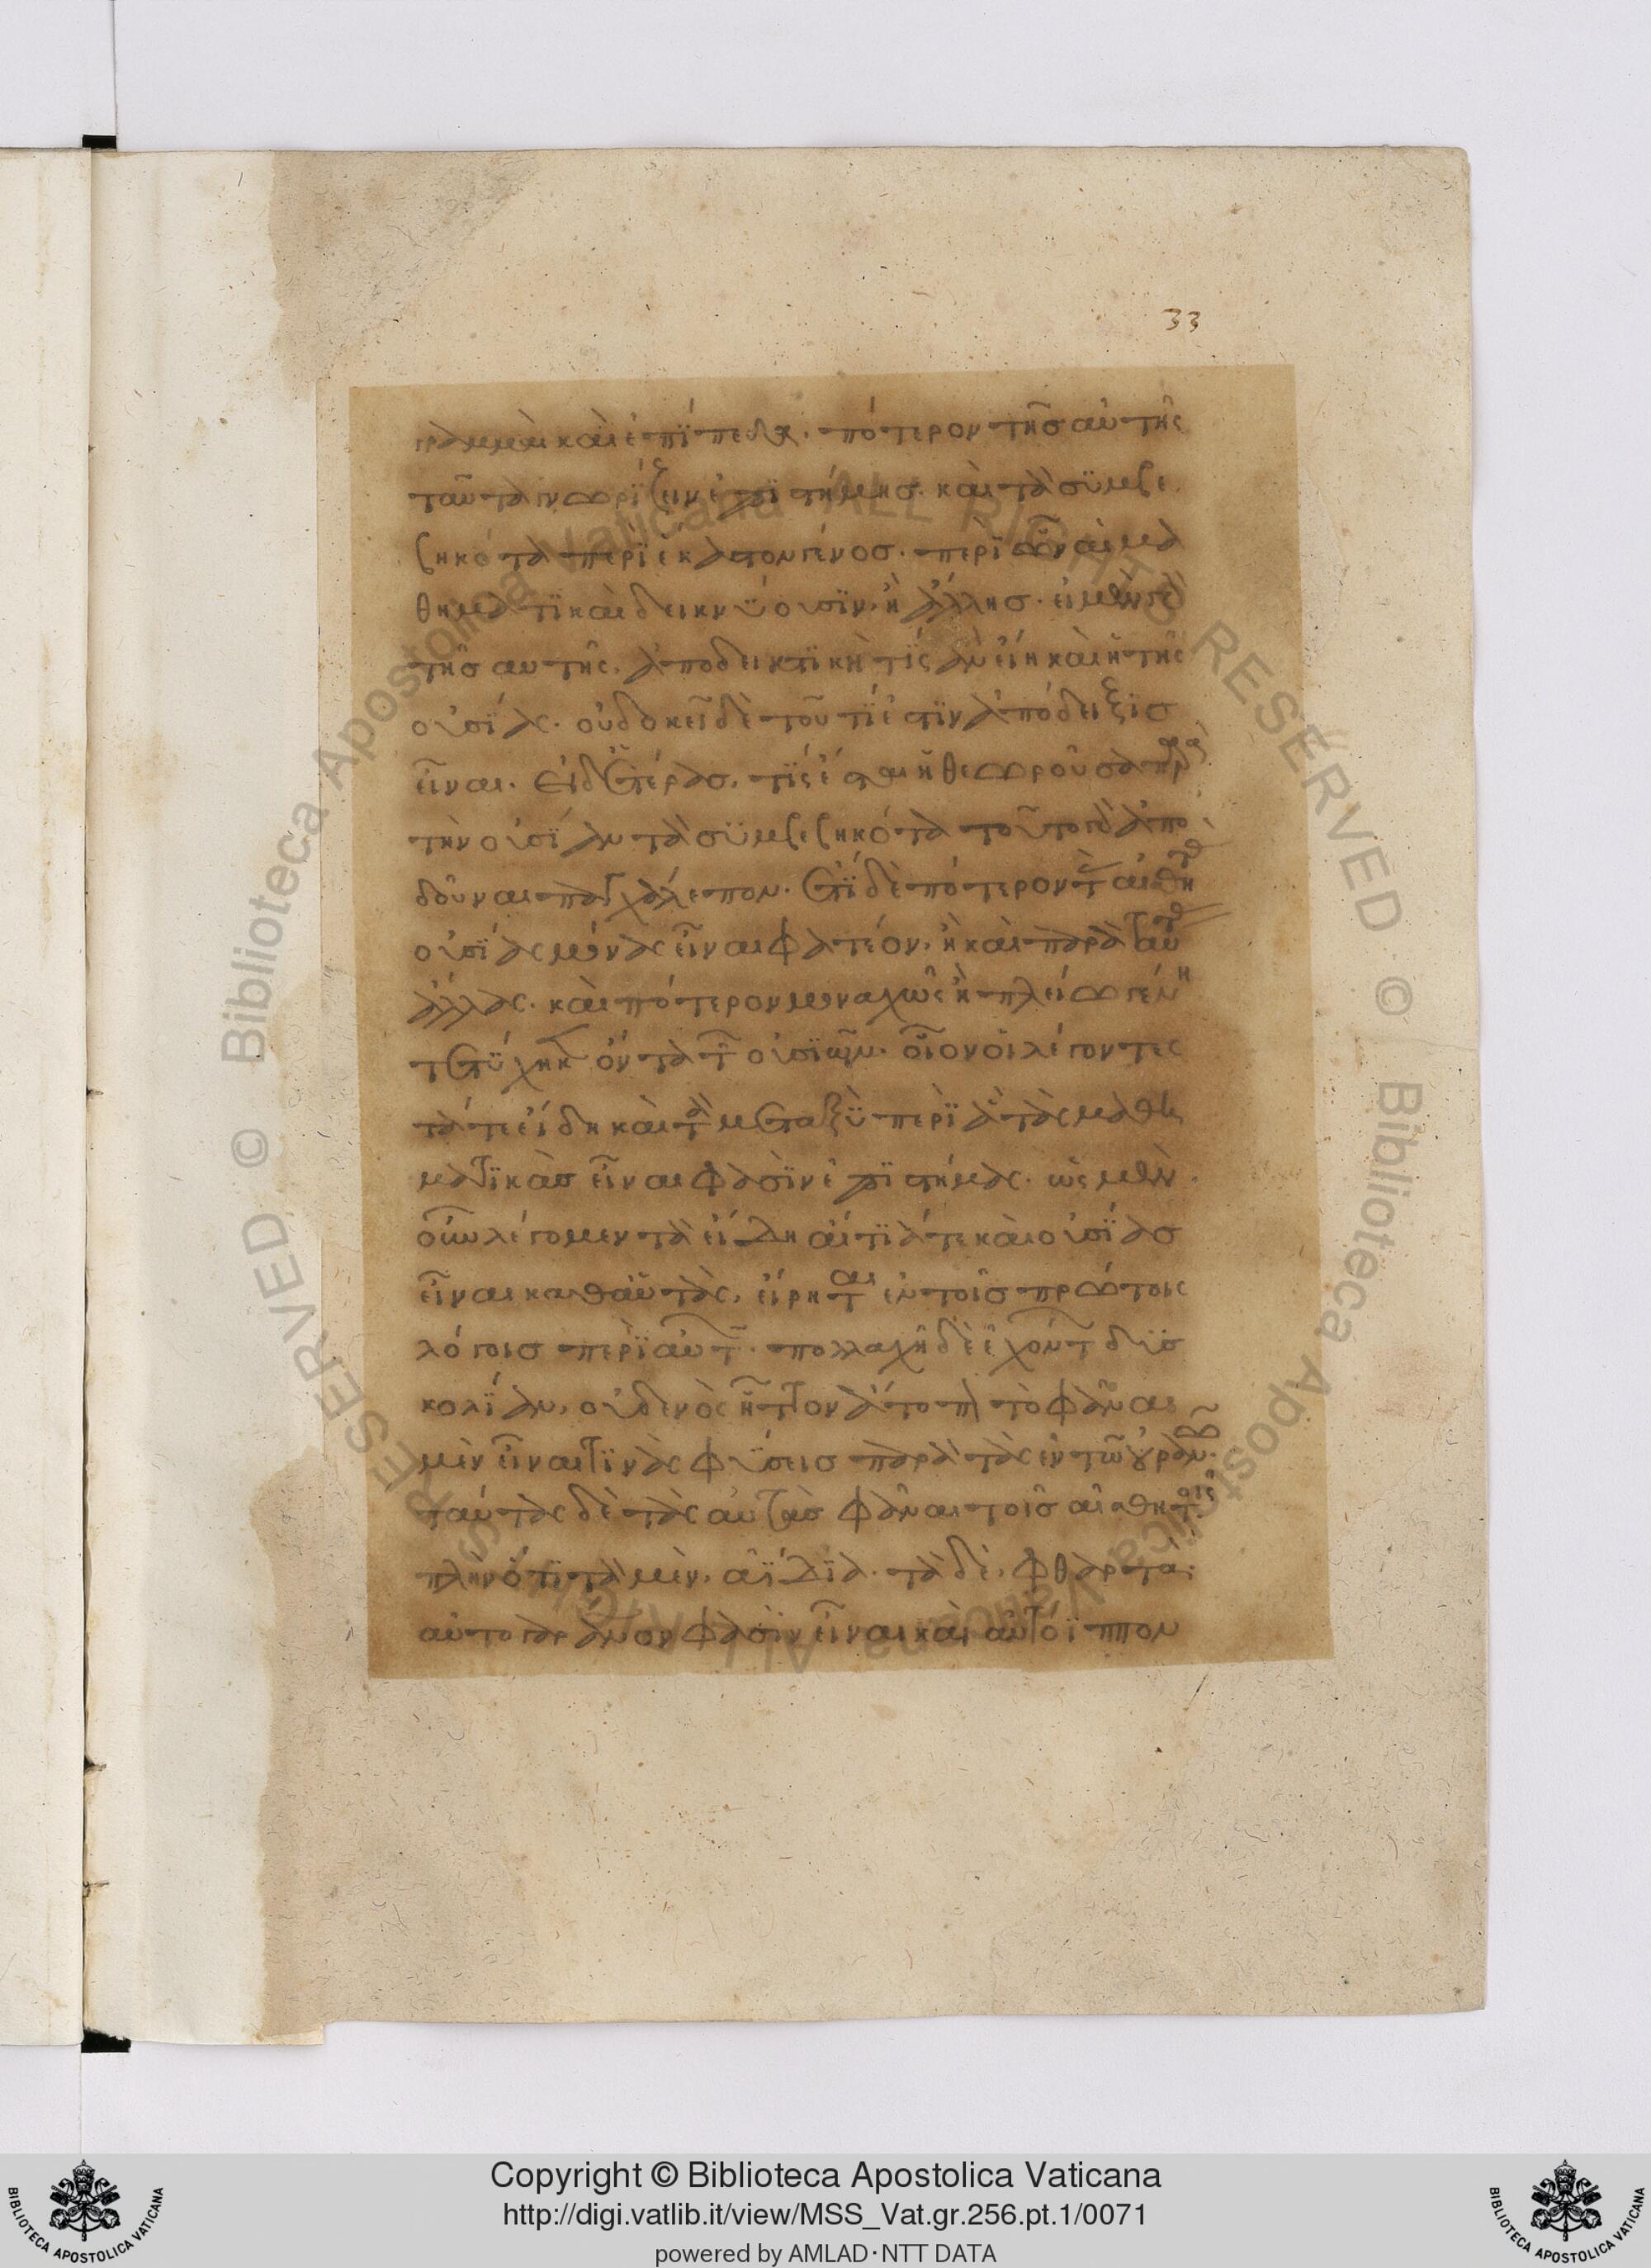 33
γραμμαὶ καὶ ἐπίπεδα. πότερον τῆς αὐτῆς
ταῦτα γνωρίζειν ἐπιστήμης. καὶ τὰ συμβε
βηκότα περὶ ἕκαστον γένος. περὶ ὧν αἱ μα
θηματικαὶ δεικνύουσιν, ἢ ἄλλης. εἰ μὲν γὰρ
τῆς αὐτῆς, ἀποδεικτική τις ἂν εἴη καὶ ἡ τῆς
οὐσίας. οὐ δοκεῖ δὲ τοῦ τί ἐστιν ἀπόδειξις
εἶναι. εἰ δ' ἑτέρας, τίς ἔσται ἡ θεωροῦσα περὶ
τὴν οὐσίαν τὰ συμβεβηκότα τοῦτο γὰρ ἀπο
δοῦναι παγχάλεπον. ἔτι δὲ πότερον τὰς αἰσθητὰς
οὐσίας μόνας εἶναι φατέον, ἢ καὶ παρὰ ταύτας
ἄλλας. καὶ πότερον μοναχῶς ἢ πλείω γένη
τετύχηκεν ὄντα τῶν οὐσιῶν. οἷον οἱ λέγοντες
τά τε εἴδη καὶ τὰ μεταξὺ περὶ ἃ τὰς μαθη
ματικὰς εἶναι φασὶν ἐπιστήμας. ὡς μὲν
οὖν λέγομεν τὰ εἴδη αἴτιά τε καὶ οὐσίας
εἶναι καθ' αὑτὰς, εἴρηται ἐν τοῖς πρώτοις
λόγοις περὶ αὐτῶν. πολλαχῆ δὲ ἐχόντων δυσ
κολίαν, οὐδενὸς ἧττον ἄτοπον τὸ φάναι
μὲν εἶναι τινὰς φύσεις παρὰ τὰς ἐν τῶ οὐρανῶ.
ταύτας δὲ τὰς αὐτὰς φάναι τοῖς αἰσθητοῖς
πλὴν ὅτι τὰ μὲν, ἀΐδια. τὰ δὲ, φθαρτά.
αὐτὸ γὰρ ἄνθρωπον φασὶν εἶναι καὶ αὐτόϊππον
Copyright © Biblioteca Apostolica Vaticana
http://digi.vatlib.it/view/MSS_Vat.gr.256.pt.1/0071
powered by AMLAD·NTT DATA